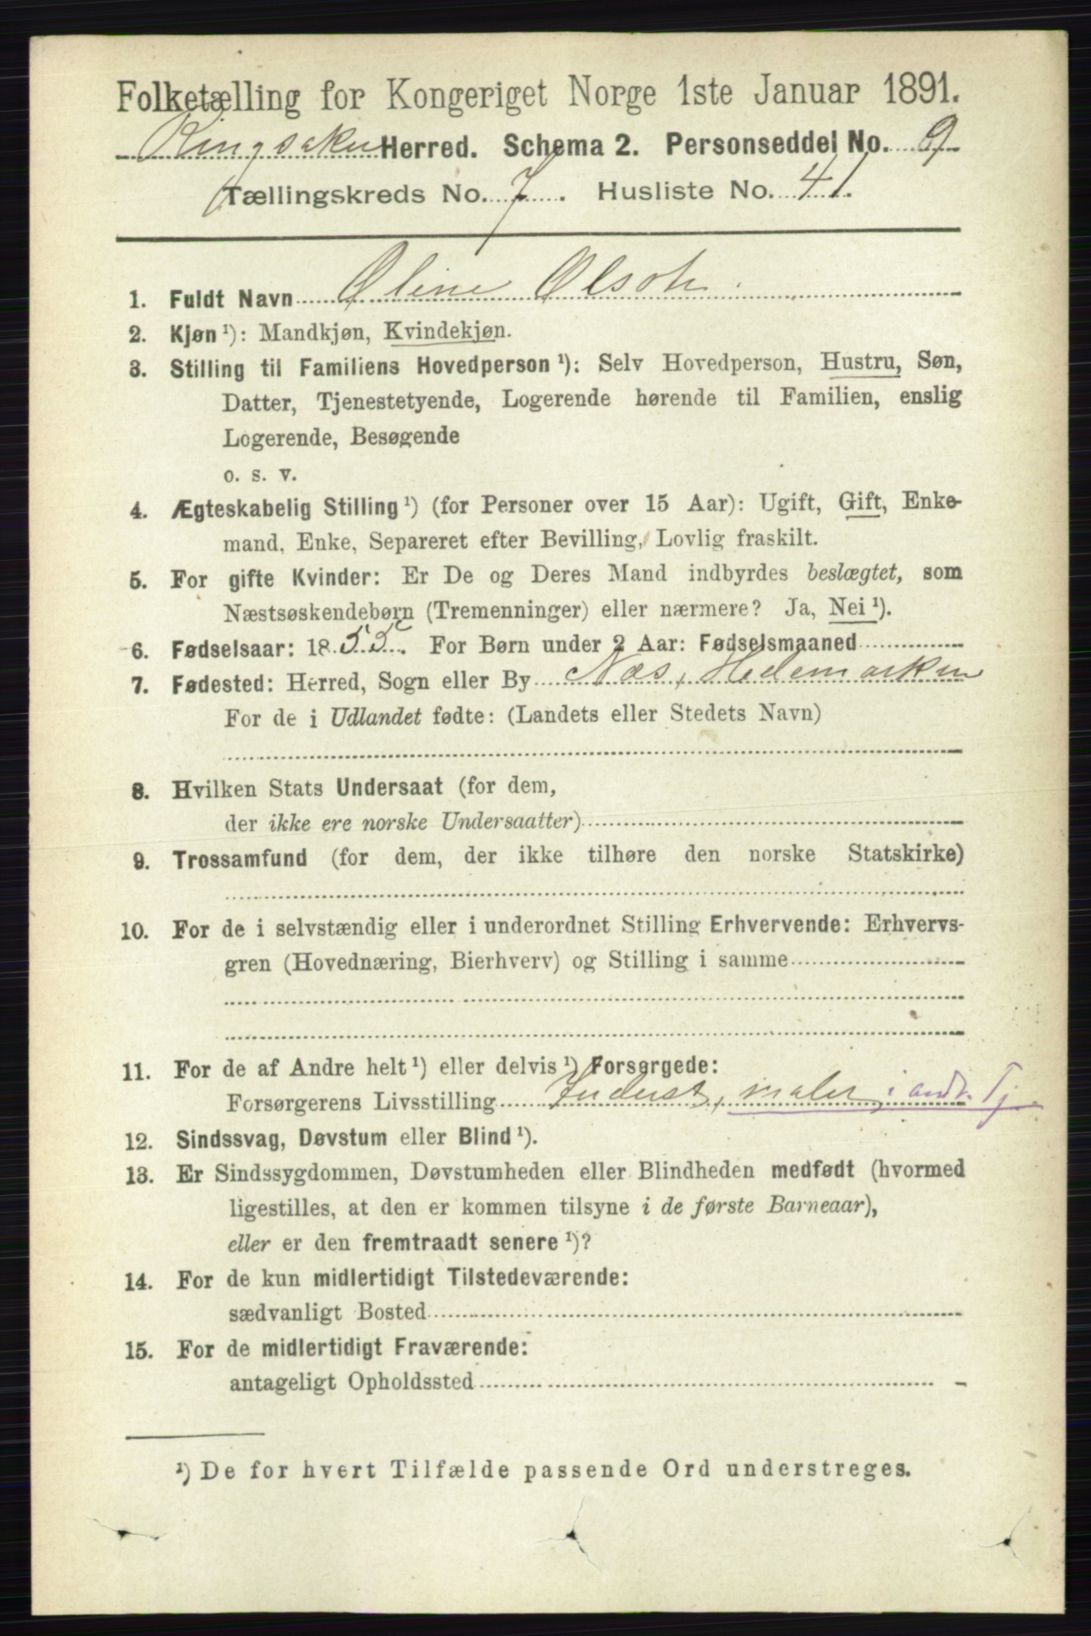 Folketælling for Kongeriget Norge 1ste Januar 1891.
Ringsaker Herred. Schema 2. Personseddel No. 9
Tællingskreds No. 7. Husliste No. 41.
1. Fuldt Navn Oline Olsdtr.
2. Kjøn ¹): Mandkjøn, Kvindekjøn.
3. Stilling til Familiens Hovedperson ¹): Selv Hovedperson, Hustru, Søn,
Datter, Tjenestetyende, Logerende hørende til Familien, enslig
Logerende, Besøgende
o. s. v.
4. Ægteskabelig Stilling ¹) (for Personer over 15 Aar): Ugift, Gift, Enke-
mand, Enke, Separeret efter Bevilling, Lovlig fraskilt.
5. For gifte Kvinder: Er De og Deres Mand indbyrdes beslægtet, som
Næstsøskendebørn (Tremenninger) eller nærmere? Ja, Nei ¹).
6. Fødselsaar: 1855. For Børn under 2 Aar: Fødselsmaaned
7. Fødested: Herred, Sogn eller By Næs, Hedemarken
For de i Udlandet fødte: (Landets eller Stedets Navn)
8. Hvilken Stats Undersaat (for dem,
der ikke ere norske Undersaatter)
9. Trossamfund (for dem, der ikke tilhøre den norske Statskirke)
10. For de i selvstændig eller i underordnet Stilling Erhvervende: Erhvervs-
gren (Hovednæring, Bierhverv) og Stilling i samme
11. For de af Andre helt ¹) eller delvis ¹) Forsørgede:
Forsørgerens Livsstilling Inderst, maler, i andr. Tj.
12. Sindssvag, Døvstum eller Blind ¹).
13. Er Sindssygdommen, Døvstumheden eller Blindheden medfødt (hvormed
ligestilles, at den er kommen tilsyne i de første Barneaar),
eller er den fremtraadt senere ¹)?
14. For de kun midlertidigt Tilstedeværende:
sædvanligt Bosted
15. For de midlertidigt Fraværende:
antageligt Opholdssted
¹) De for hvert Tilfælde passende Ord understreges.